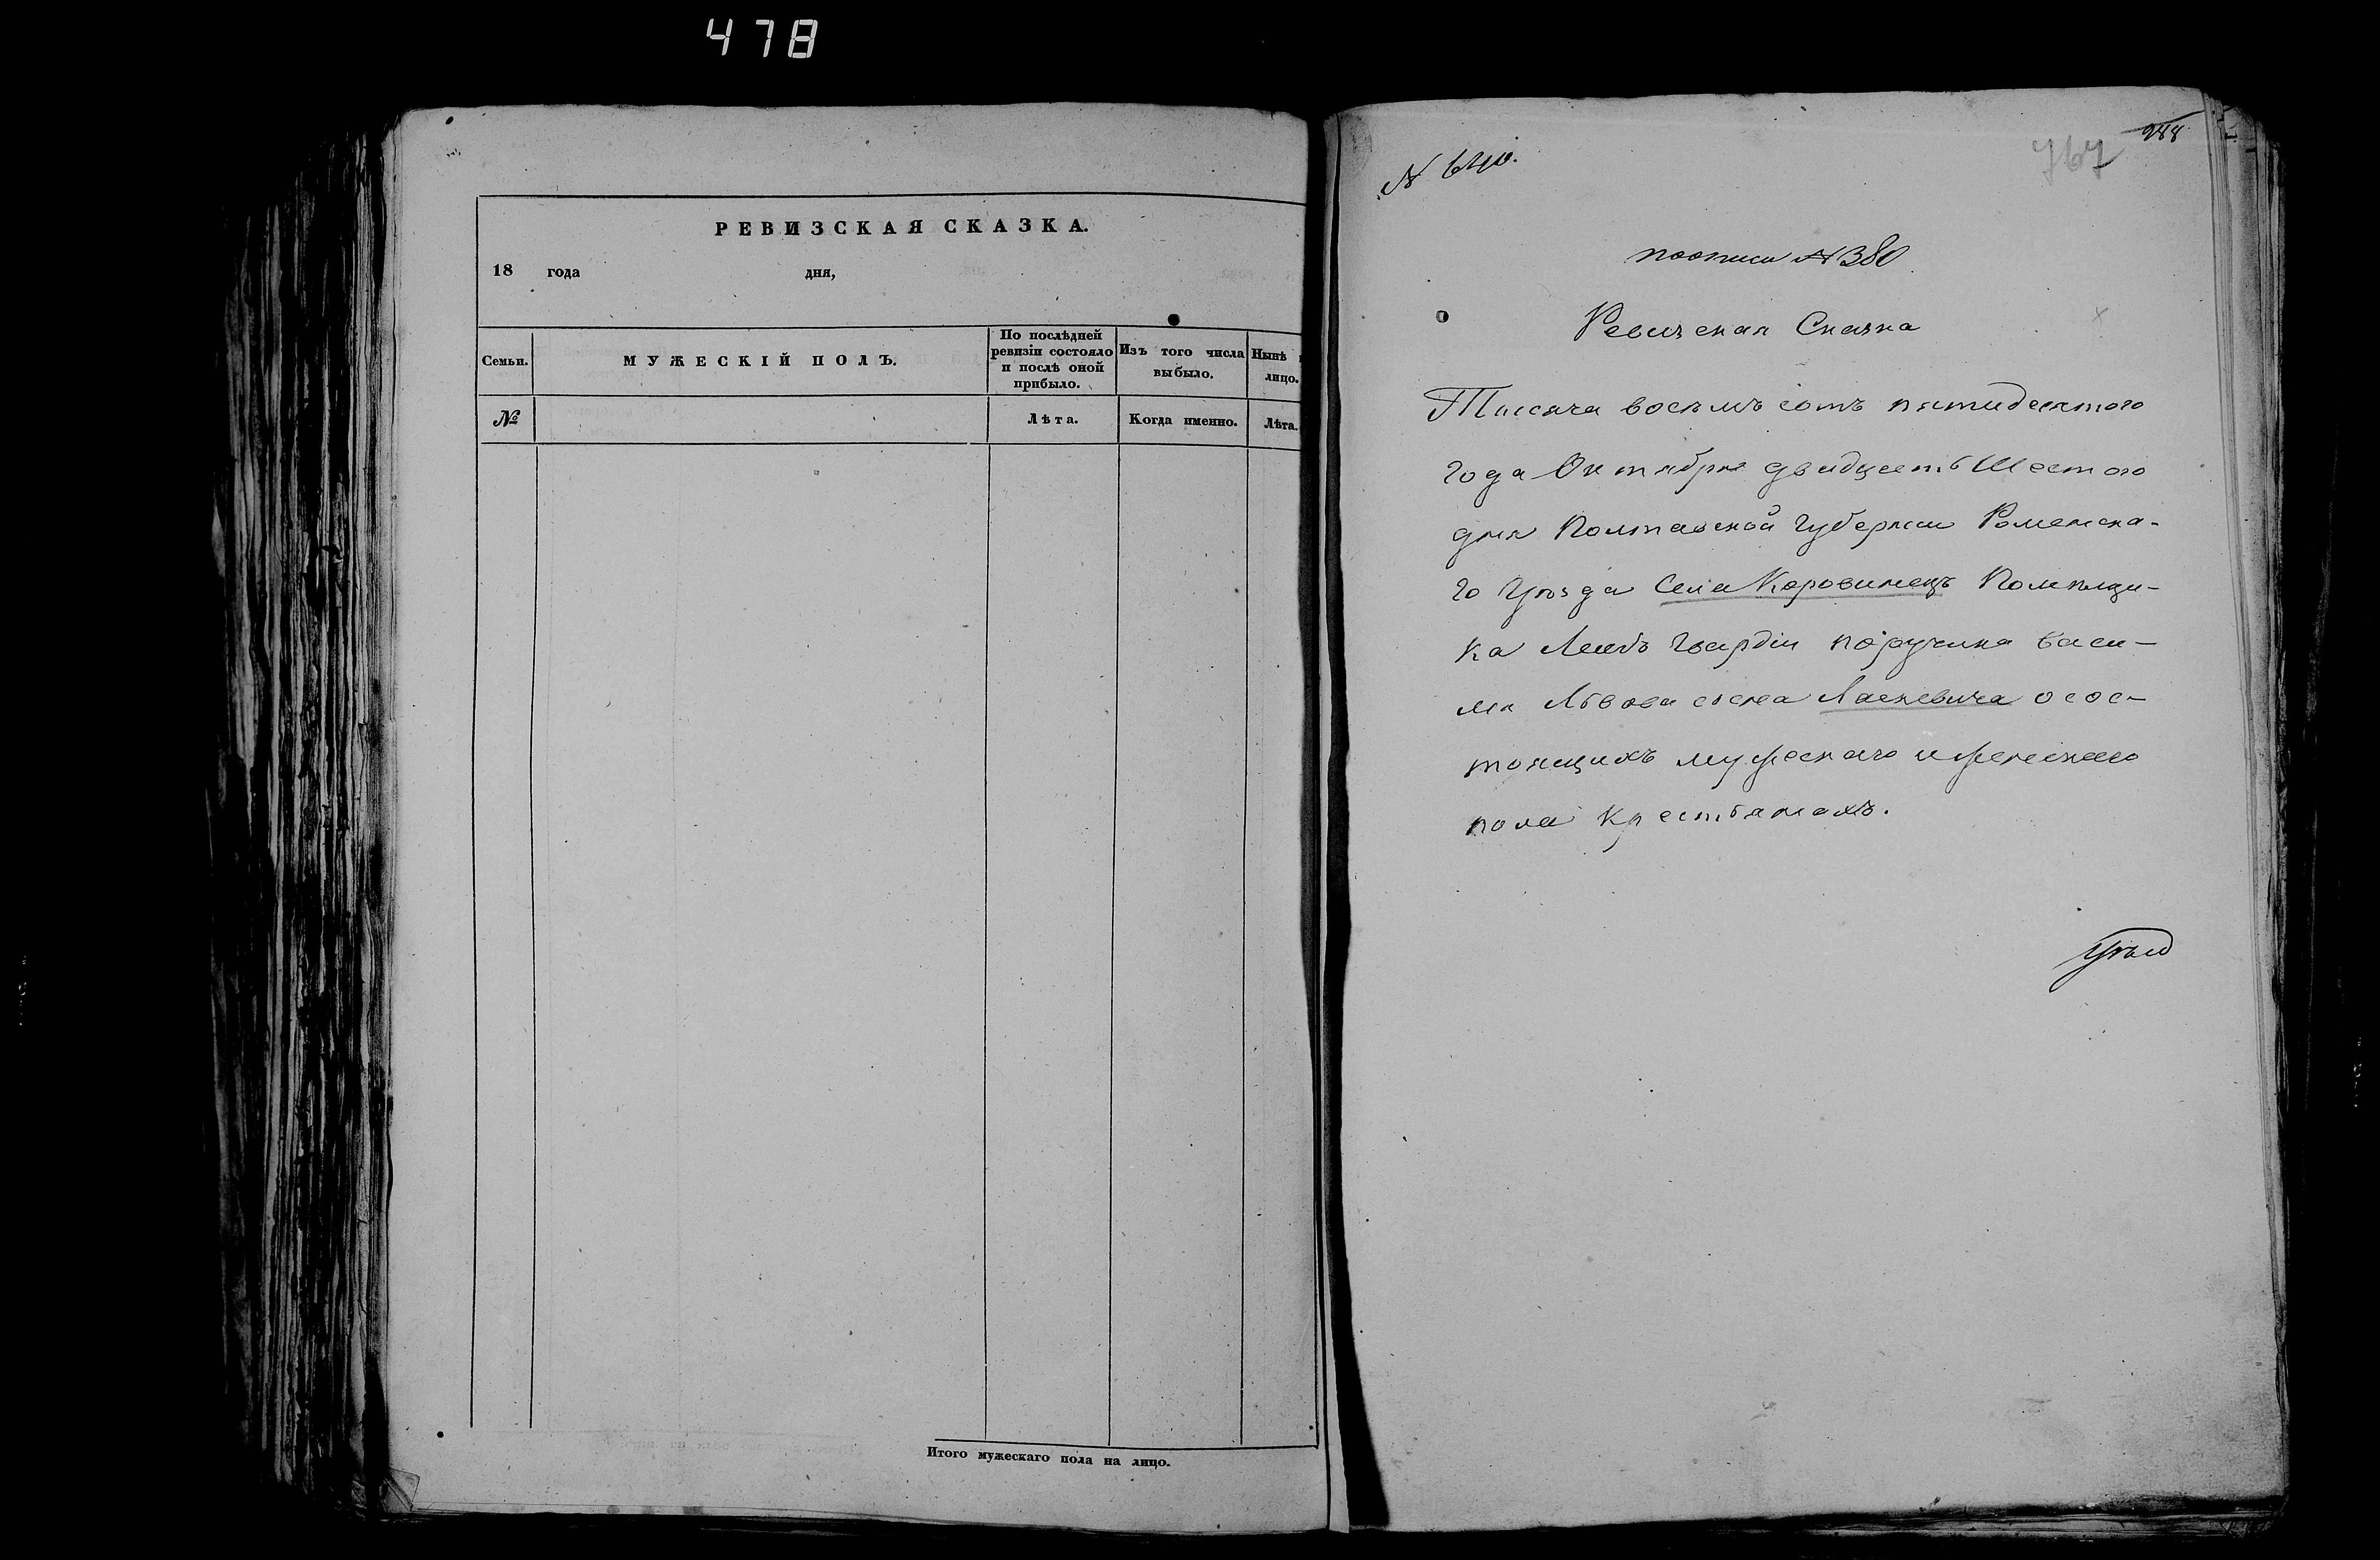 478
РЕВИЗСКАЯ СКАЗКА.
18 года дня,
Семьи.
МУЖЕСКІЙ ПОЛЪ.
По послѣдней
ревизіи состояло
и послѣ оной
прибыло.
Изъ того числа
выбыло.
Нынѣ
лицо.
№
Лѣта.
Когда именно.
Лѣта.
Итого мужескаго пола на лицо.
767
288
поописи № 380
Ревизская Сказка
Тысяча восемъ сотъ пятидесятого
года Октября двадцеть Шестого
дня Полтавской Губерніи Роменска-
го Уѣзда Села Коровинецъ Помѣщи-
ка Лейбъ Гвардіи поручика Васи-
ля Львова сына Ласкевича о сос-
тоящихъ мужескаго и женскаго
пола Крестьянахъ.